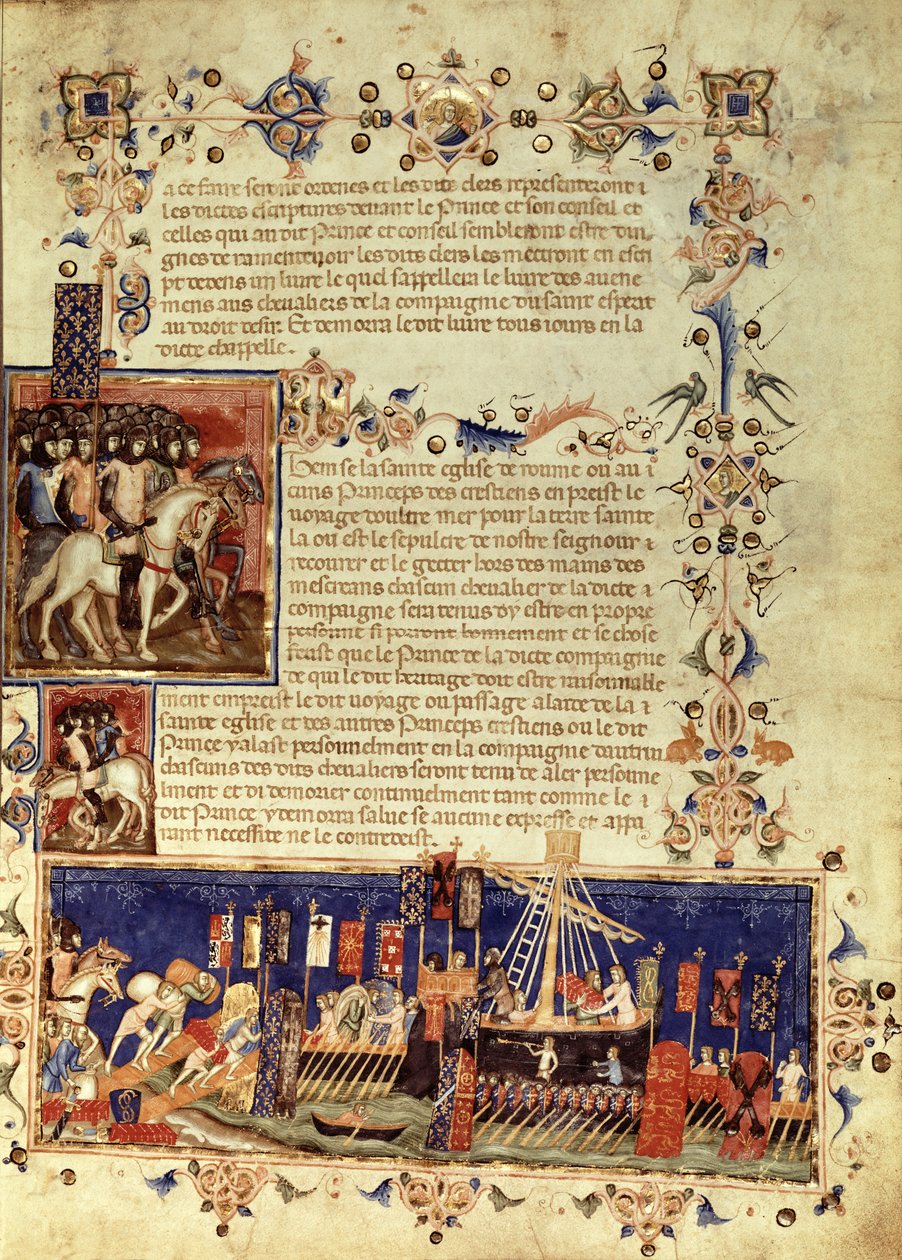 a ce faire seront ordenes et les dits clers representeront
les dictes escriptures devant le Prince et son conseil et
celles qui au dit Prince et conseil sembleront estre din
gnes de ramentevoir les dits clers les mectront en escri
pt dedens un livre le quel sappellera le livre des avene
mens aus chevaliers de la compaignie du saint esperit
au droit desir. Et demorra le dit livre tous iours en la
dicte chappelle.
Item se la sainte eglise de roume ou au
cuns Princeps des crestiens enpreist le
voyage doultre mer pour la terre sainte
la ou est le sepulcre de nostre seignour
recovrer et le gecter hors des mains des
mescreans chascun chevalier de la dicte
compaignie sera tenus dy estre en propre
personne si porront bonnement et se chose
feust que le Prince de la dicte compaignie
de qui le dit heritage doit estre raisonnable
ment empreist le dit voyage ou passage a laide de la
sainte eglise et des autres Princeps crestiens ou le dit
Prince y alast personnelment en la compaignie dautrui
chascuns des dits chevaliers seront tenu de aler personne
lment et di demorier continuelment tant comme le
dit Prince y demorra salve se aucune expresse et appa
rant necessite ne le contredeist.